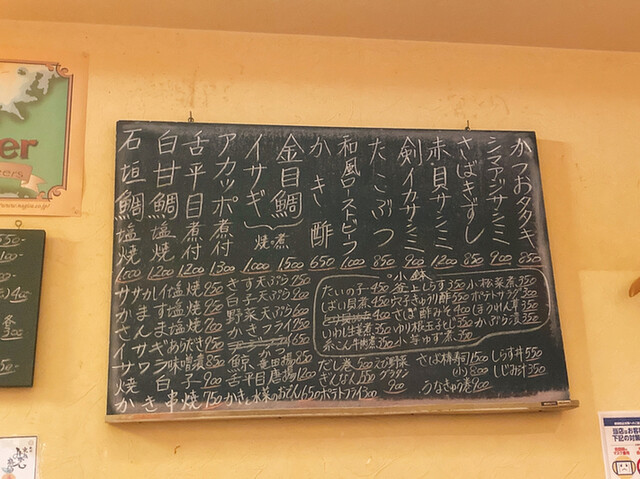 かつおタタキ 850
シマアジサシミ 900
さばきずし 850
赤貝サシミ 1200
剣イカサシミ 900
たこぶつ 850
和風ローストビーフ 1000
かき酢 650
金目鯛 1500
イサギ 1000
焼・煮
アカッポ煮付 1300
舌平目煮付 1200
白甘鯛塩焼 1200
石垣鯛塩焼 1000
サザカレイ塩焼 950
かます塩焼 950
さんま塩焼 900
イサギあらだき 950
サワラ味噌漬 850
焼白子 900
かき串焼 750
きす天ぷら 750
白子天ぷら 950
野菜天ぷら 600
かきフライ 750
鯨竜田揚 850
舌平目唐揚 1200
かきと水菜のおでん 650
ポテトフライ 300
小鉢
たいの子 450
しばい貝煮 400
いわし生姜煮 350
糸こん牛肉煮 350
釜上しらす 350
穴子きゅうり酢 550
さば酢みそ 400
ゆり根玉子とじ 350
小芋ゆず煮 350
小松菜煮 350
ポテトサラダ 300
ほうれん草 350
かぶら漬 350
だし巻 500
ぎんなん 550
えび野菜グラタン 900
さば棒寿し 1500
(小) 800
うなきゅう巻 900
しらす汁 550
しじみ汁 350
er
eers